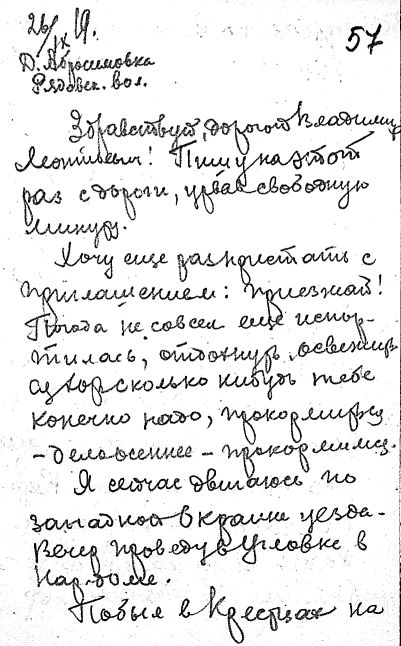 26/IX 19.
57
Д. Абросимовка
Рядовск. вол.
Здравствуй, дорогой Владимир
Леонтьевич! Пишу на этот
раз с дороги, урвав свободную
минуту.
Хочу еще раз пристать с
приглашением: приезжай!
Погода не совсем еще испор-
тилась, отдохнуть, освежиться
сколько нибудь тебе
конечно надо, прокормиться
- дело осеннее - прокормимся.
Я сейчас двигаюсь по
западной окраине уезда.
Вечер проведу в Угловке в
Нар. доме.
Побыл в Крестцах на